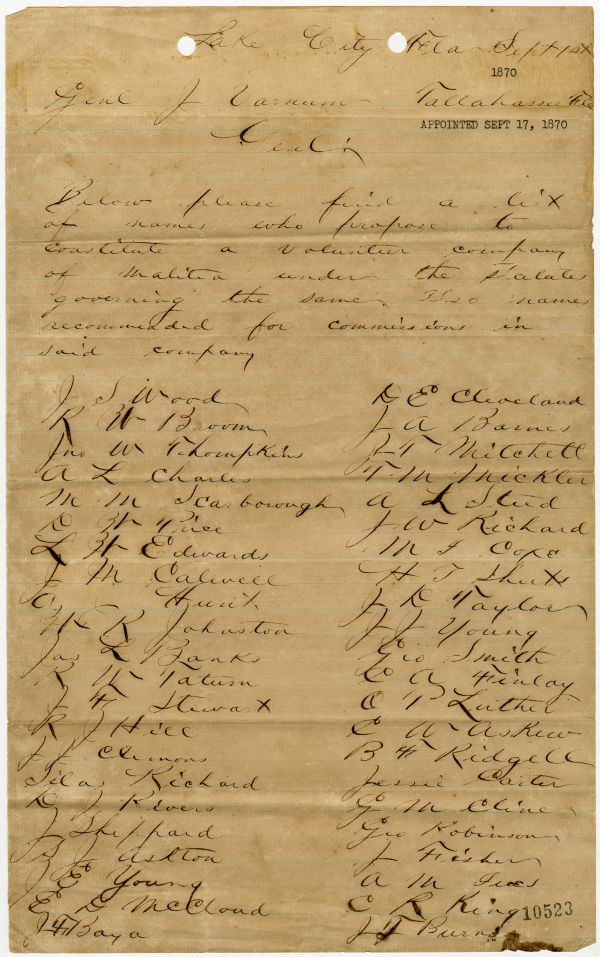 Lake City Fla Sept 1st
1870
Genl J Varnum Tallahassee Fla
APPOINTED SEPT 17, 1870
Genl;
Below please find a list
of names who propose to
constitute a volunteer company
of malitia under the Statutes
governing the same. Also names
recommended for commissions in
said company
J S Wood
R W Broom
Jno W Thompkins
A L Charles
M M Scarborough
D W Price
L W Edwards
J M Calwell
Hunt
W R Johnston
Jas L Banks
R W Tatum
J F Stewart
R J Hill
J J Clemons
Silas Richard
D J Rivers
J Sheppard
J Ashton
J E Young
E D McCloud
J F Baya
D E Cleveland
J A Barnes
J T Mitchell
T M Mickler
A L Steed
J W Richard
M F Cope
H T Shuts
J D Taylor
J J Young
Geo Smith
C A Finlay
O P Luther
E W Askew
B F Ridgell
Jessie Carter
G M Cline
Geo Robinson
J Fisher
A M
C R King
J T Burns
10523